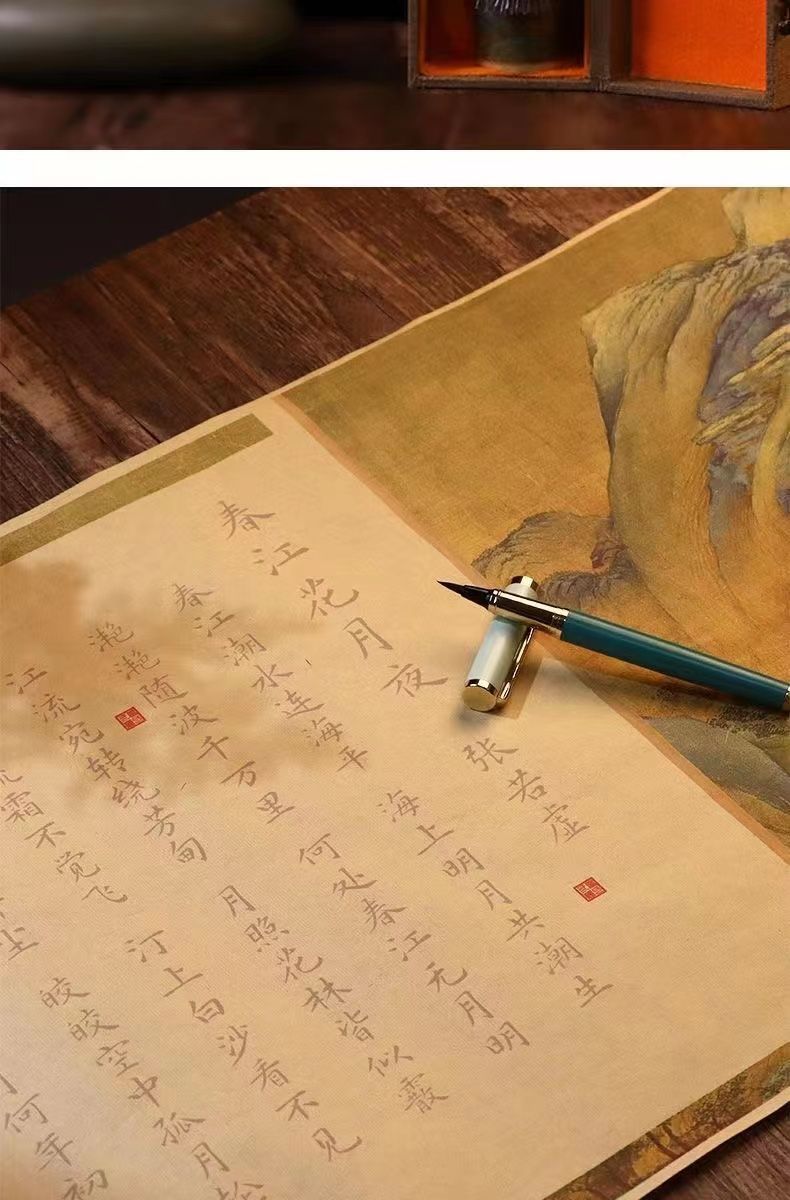 春江花月夜
张若虚
春江潮水连海平
海上明月共潮生
滟滟随波千万里
何处春江无月明
江流宛转绕芳甸
月照花林皆似霰
霜不觉飞
汀上白沙看不见
尘
皎皎空中孤月
何年初